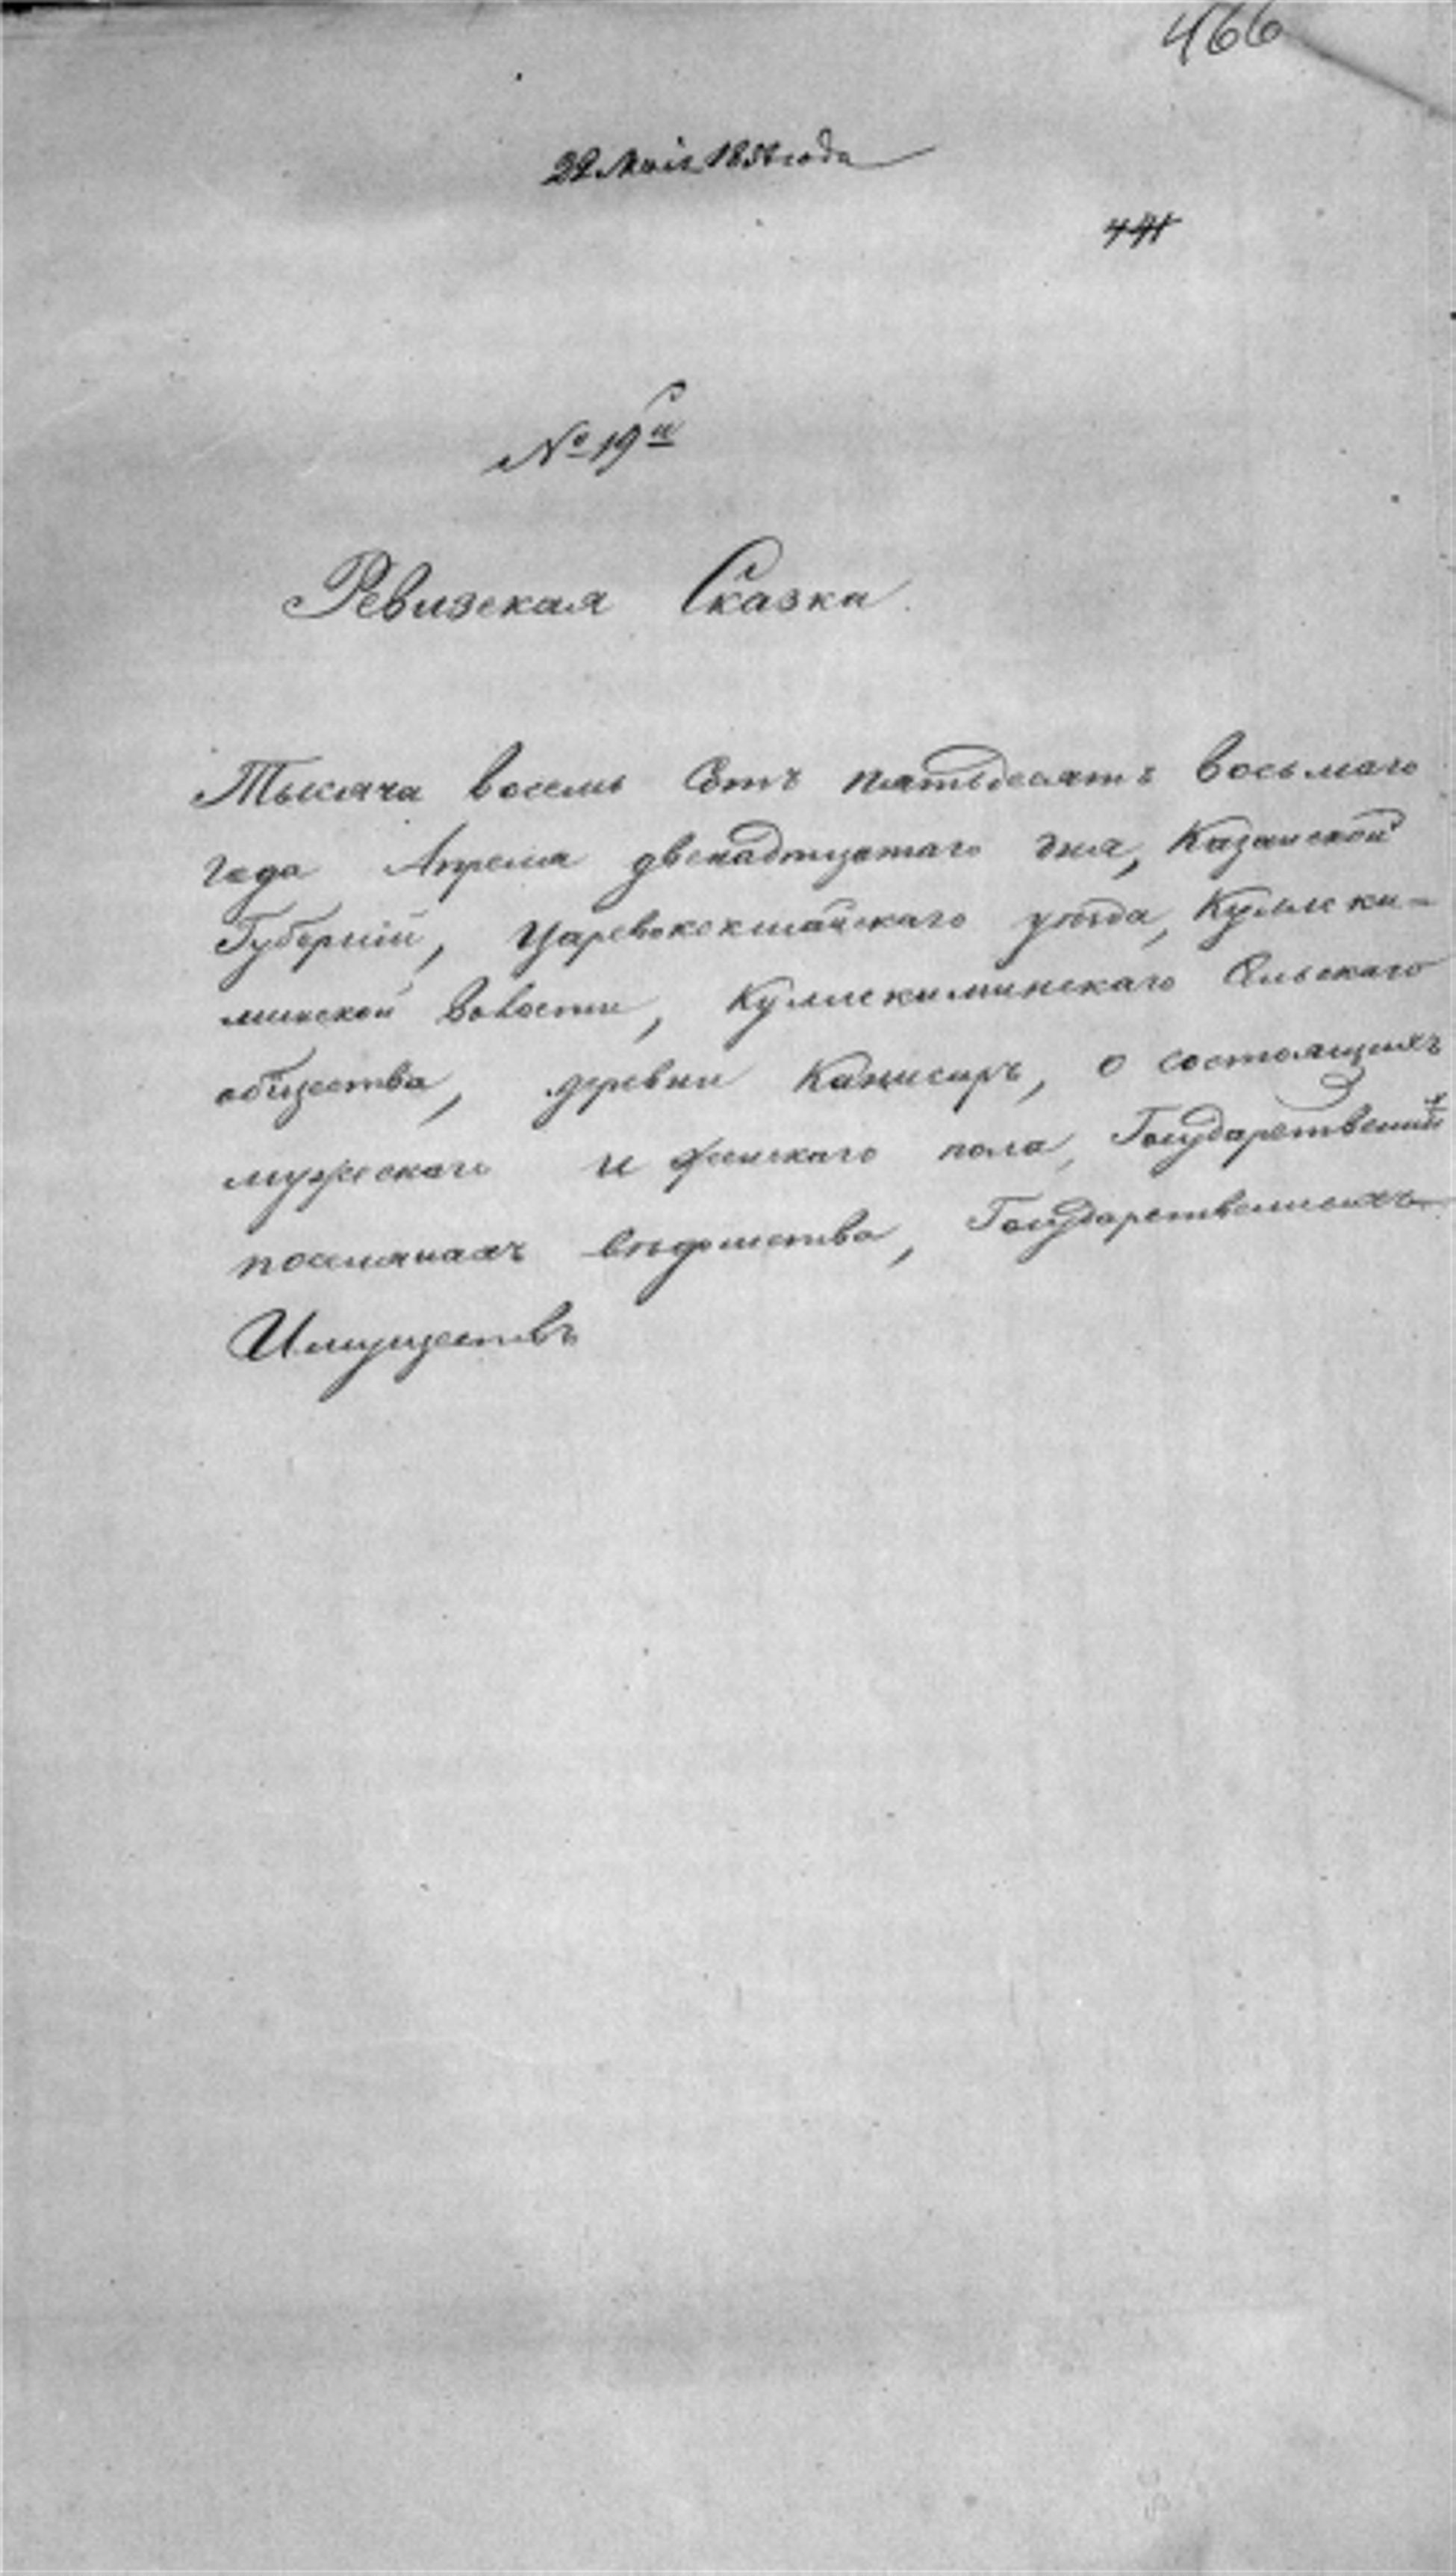 466
22 Маія 1858 года
441
№ 19й
Ревизская Сказка.
Тысяча восемь Сотъ пятьдесятъ восьмаго
года Апреля двенадцатаго дня, Казанской
Губерніи, Царевококшайскаго уѣзда, Кулле ки-
минской Волости, Куллекиминскаго Сельскаго
общества, деревни Канисаръ, о состоящихъ
мужескаго и женскаго пола, Государственныхъ
поселянахъ вѣдомства, Государственныхъ
Имуществъ